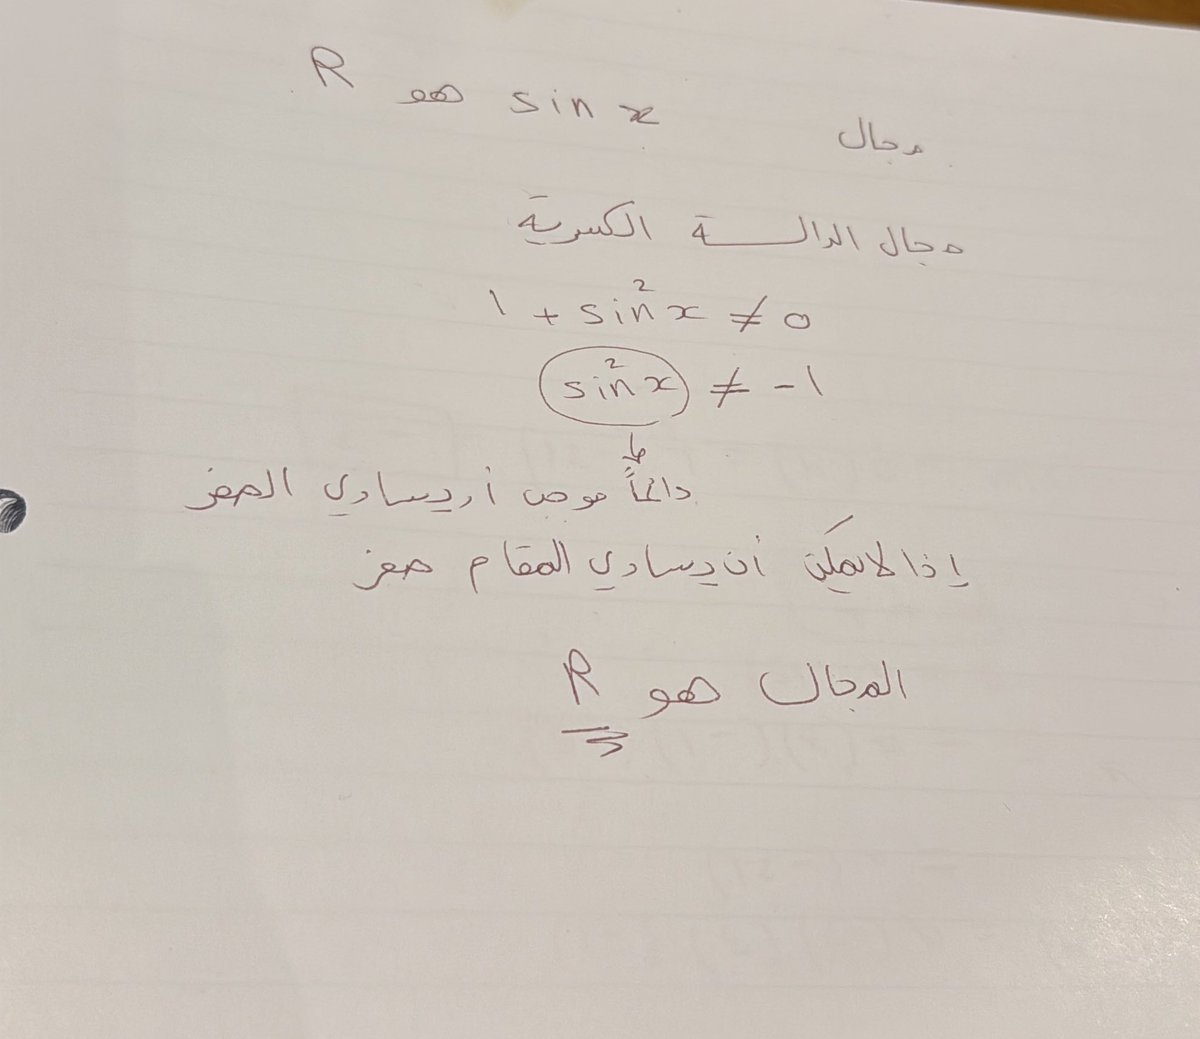 مجال sin x هو R
مجال الدالـــة الكسرية
1 + sin²x ≠ 0
sin²x ≠ -1
دائماً موجب أو يساوي الصفر
إذا لا يمكن أن يساوي المقام صفر
المجال هو R